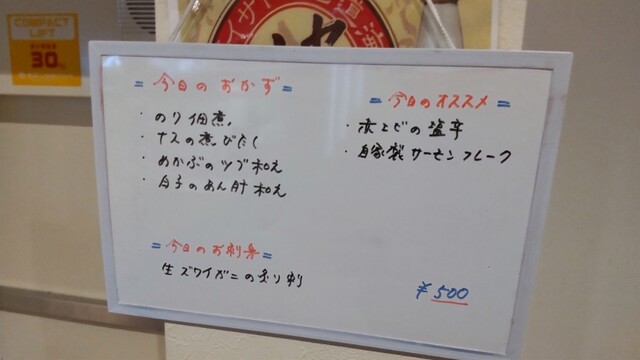 COMPACT
LIFT
30
= 今日のおかず =
・のり佃煮。
・ナスの煮びたし
・めかぶのツブ和え
・白子のあん肝和え
= 今日のお刺身 =
生ズワイガニの炙り刺
= 今日のオススメ =
・赤エビの塩辛
・自家製サーモンフレーク
¥500